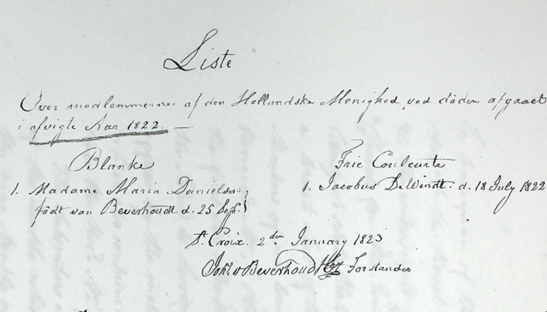 Liste
Over medlemmerne af den Hollandske Menighed, ved døden afgaaet
i afvigte Aar 1822 —
Blanke
Frie Couleurte
1. Madame Maria Danielsen,
1. Jacobus De Windt. d. 18 July 1822
født van Beverhoudt d. 25
St. Croix 2den January 1823
Joh: v Beverhoudt Forstander